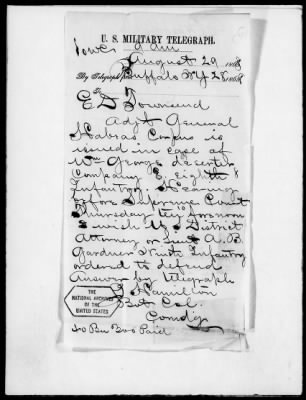 U. S. MILITARY TELEGRAPH.
9 am
August 29 186
By Telegraph from Buffalo NY 28 186
To E D Townsend
Adjt General
Habeas Corpus is
issued in case of
Wm George deserter
Company E Eighth
Infantry. Hearing
before Supreme Court
Thursday ten forenoon
I wish U S District
Attorney or Lieut A. B.
Gardner Ninth Infantry
ordered to defend
Answer by telegraph
Hamilton
Bvt Col.
Comdg
THE
NATIONAL ARCHIVES
OF THE
UNITED STATES
Paid